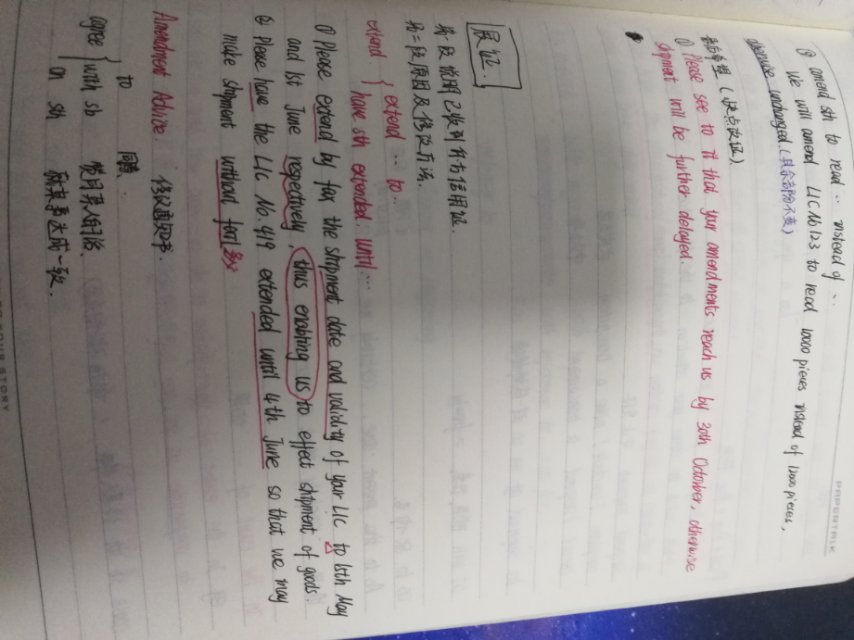 PAPERTALK
④ amend sth to read ... instead of ...
We will amend L/C No 123 to read 10000 pieces instead of 12000 pieces,
otherwise unchanged. (其余部分不变)
(改证)
① Please see to it that your amendments reach us by 30th October, otherwise
shipment will be further delayed.
展证.
第一段 说明已收到对方信用证.
第二段 原因及修改方法.
extend { extend ... to ...
have sth extended. until ...
① Please extend by fax the shipment date and validity of your L/C to 15th May
and 1st June respectively, thus enabling us to effect shipment of goods.
② Please have the L/C No. 419 extended until 4th June so that we may
make shipment without fail
Amendment Advice 修改通知书.
agree { to 同意.
with sb 赞同某人的话.
on sth 就某事达成一致.
OUR STORY